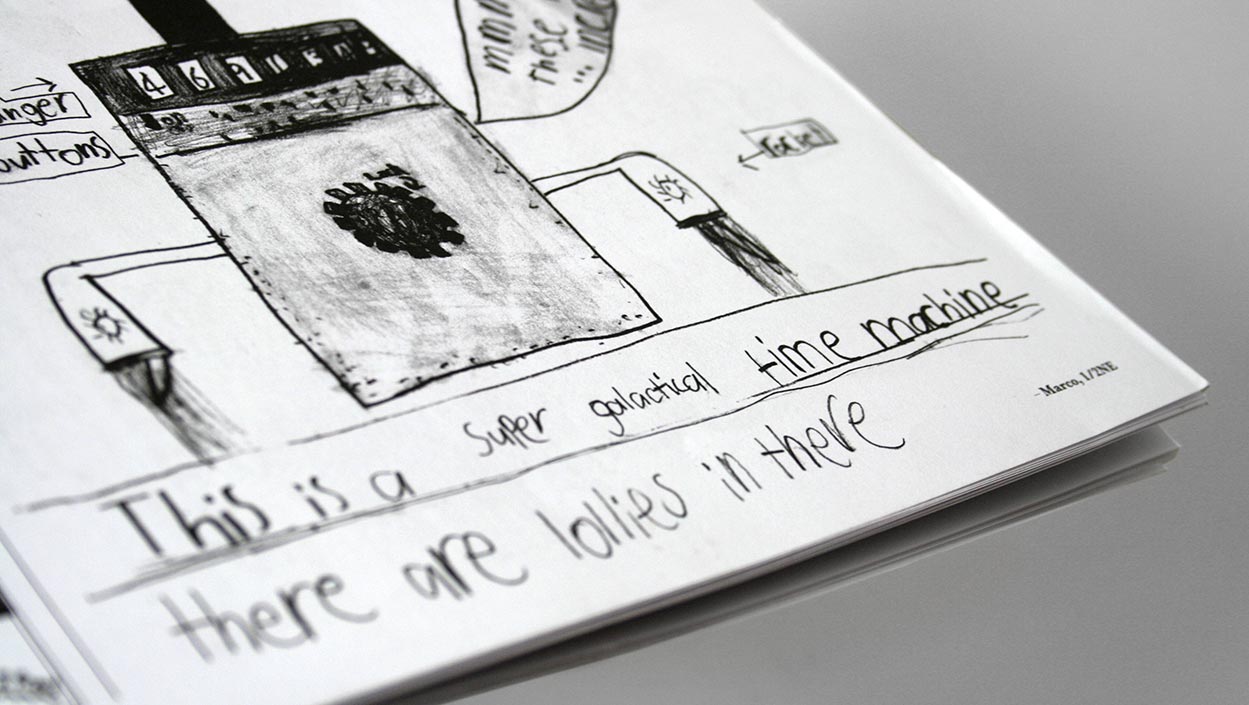 mmm
these
...
buttons
rocket
This is a super galactical time machine
there are lollies in there
– Marco, 1/2NE